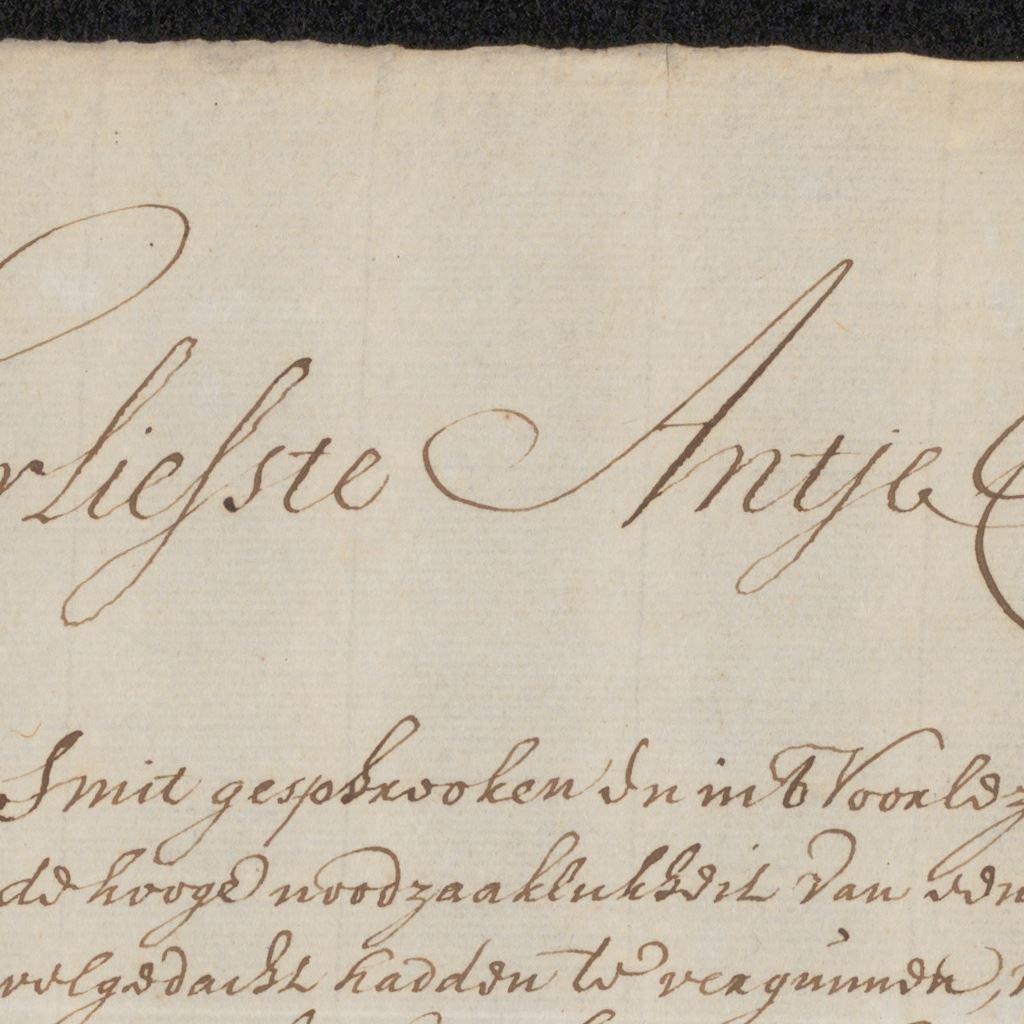 rliefste Antje
Smit gesprooken en in't Voorlez
de hooge noodzaaklukheit van een
welgedacht hadden te vergunnen,